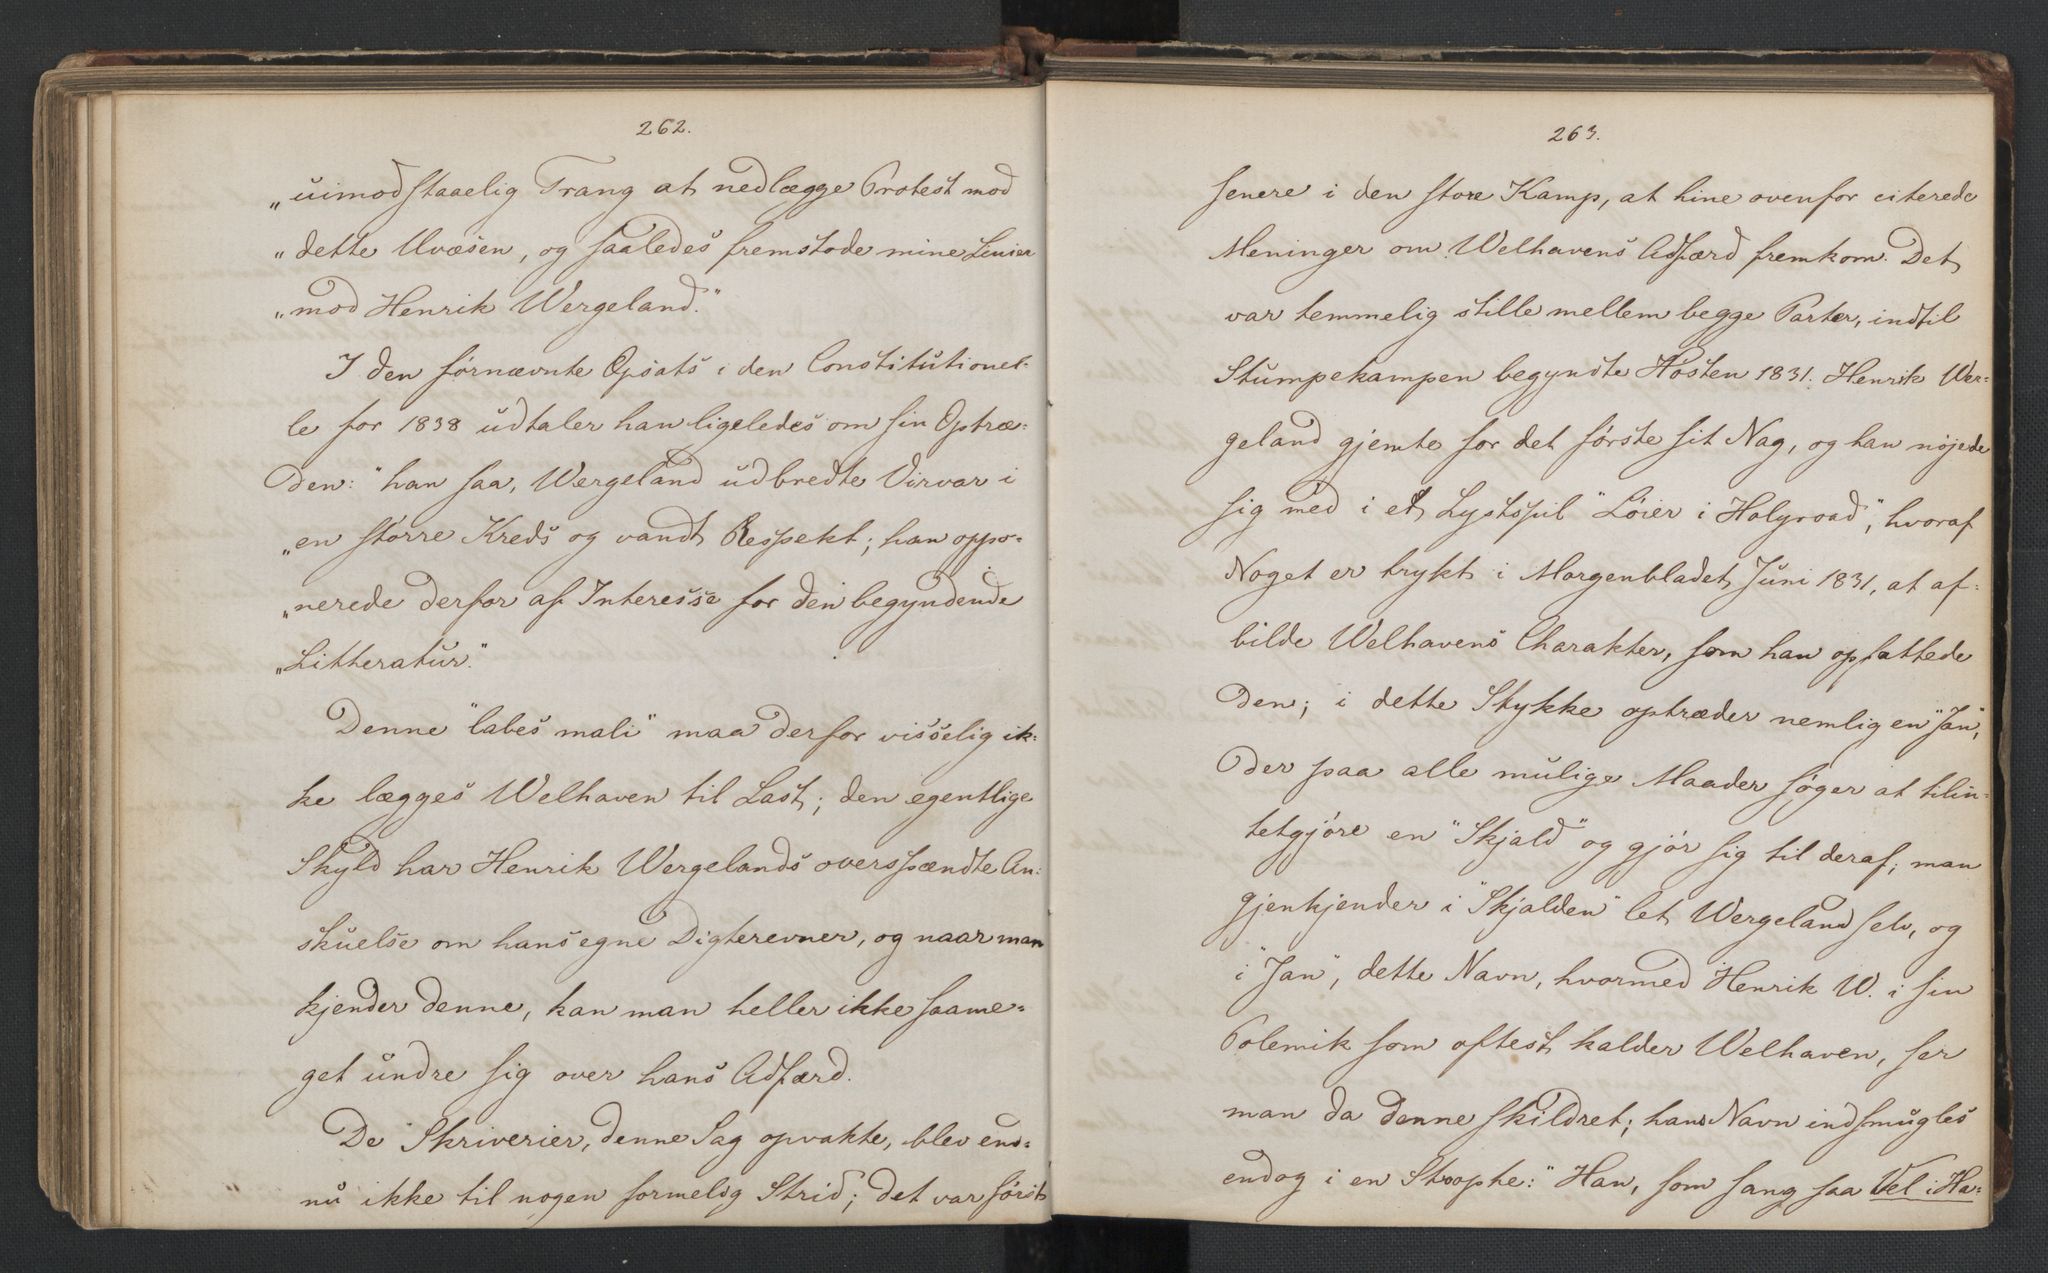 262.
„uimodstaaelig Trang at nedlægge Protest mod
„dette Uvæsen, og saaledes fremstode mine Linier
„mod Henrik Wergeland."
I den førnævnte Opsats i den Constitutionel-
le for 1838 udtaler han ligeledes om sin Optræ-
den: "han saa, Wergeland udbredte Virvar i
„en større Kreds og vandt Respekt; han oppo-
„nerede derfor af Interesse for den begyndende
„Litteratur."
Denne "labes mali" maa derfor visselig ik-
ke lægges Welhaven til Last; den egentlige
Skyld har Henrik Wergelands overspændte An-
skuelse om hans egne Digterevner, og naar man
kjender denne, kan man heller ikke saame-
get undre sig over hans Adfærd.
De Skriverier, denne Sag opvakte, blev end-
nu ikke til nogen formelig Strid; det var først
263.
senere i den store Kamp, at hine ovenfor citerede
Meninger om Welhavens Adfærd fremkom. Det
var temmelig stille mellem begge Parter, indtil
Stumpekampen begyndte Høsten 1831. Henrik Wer-
geland gjemte for det første sit Nag, og han nøjede
sig med i et Lystspil "Løier i Holyroad", hvoraf
Noget er trykt i Morgenbladet Juni 1831, at af-
bilde Welhavens Charakter, som han opfattede
den; i dette Stykke optræder nemlig en "Jan",
der paa alle mulige Maader søger at tilin-
tetgjøre en "Skjald" og gjør sig til deraf; man
gjenkjender i "Skjalden" let Wergeland selv, og
i "Jan", dette Navn, hvormed Henrik W. i sin
Polemik som oftest kalder Welhaven, ser
man da denne skildret; hans Navn indsmugles
endog i en Strophe: "Han, som sang saa Vel i Ha-